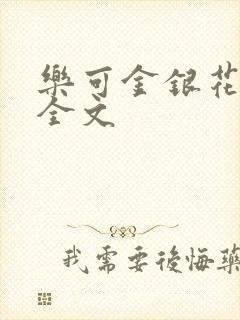 樂可金銀花
全文
我需要後悔藥